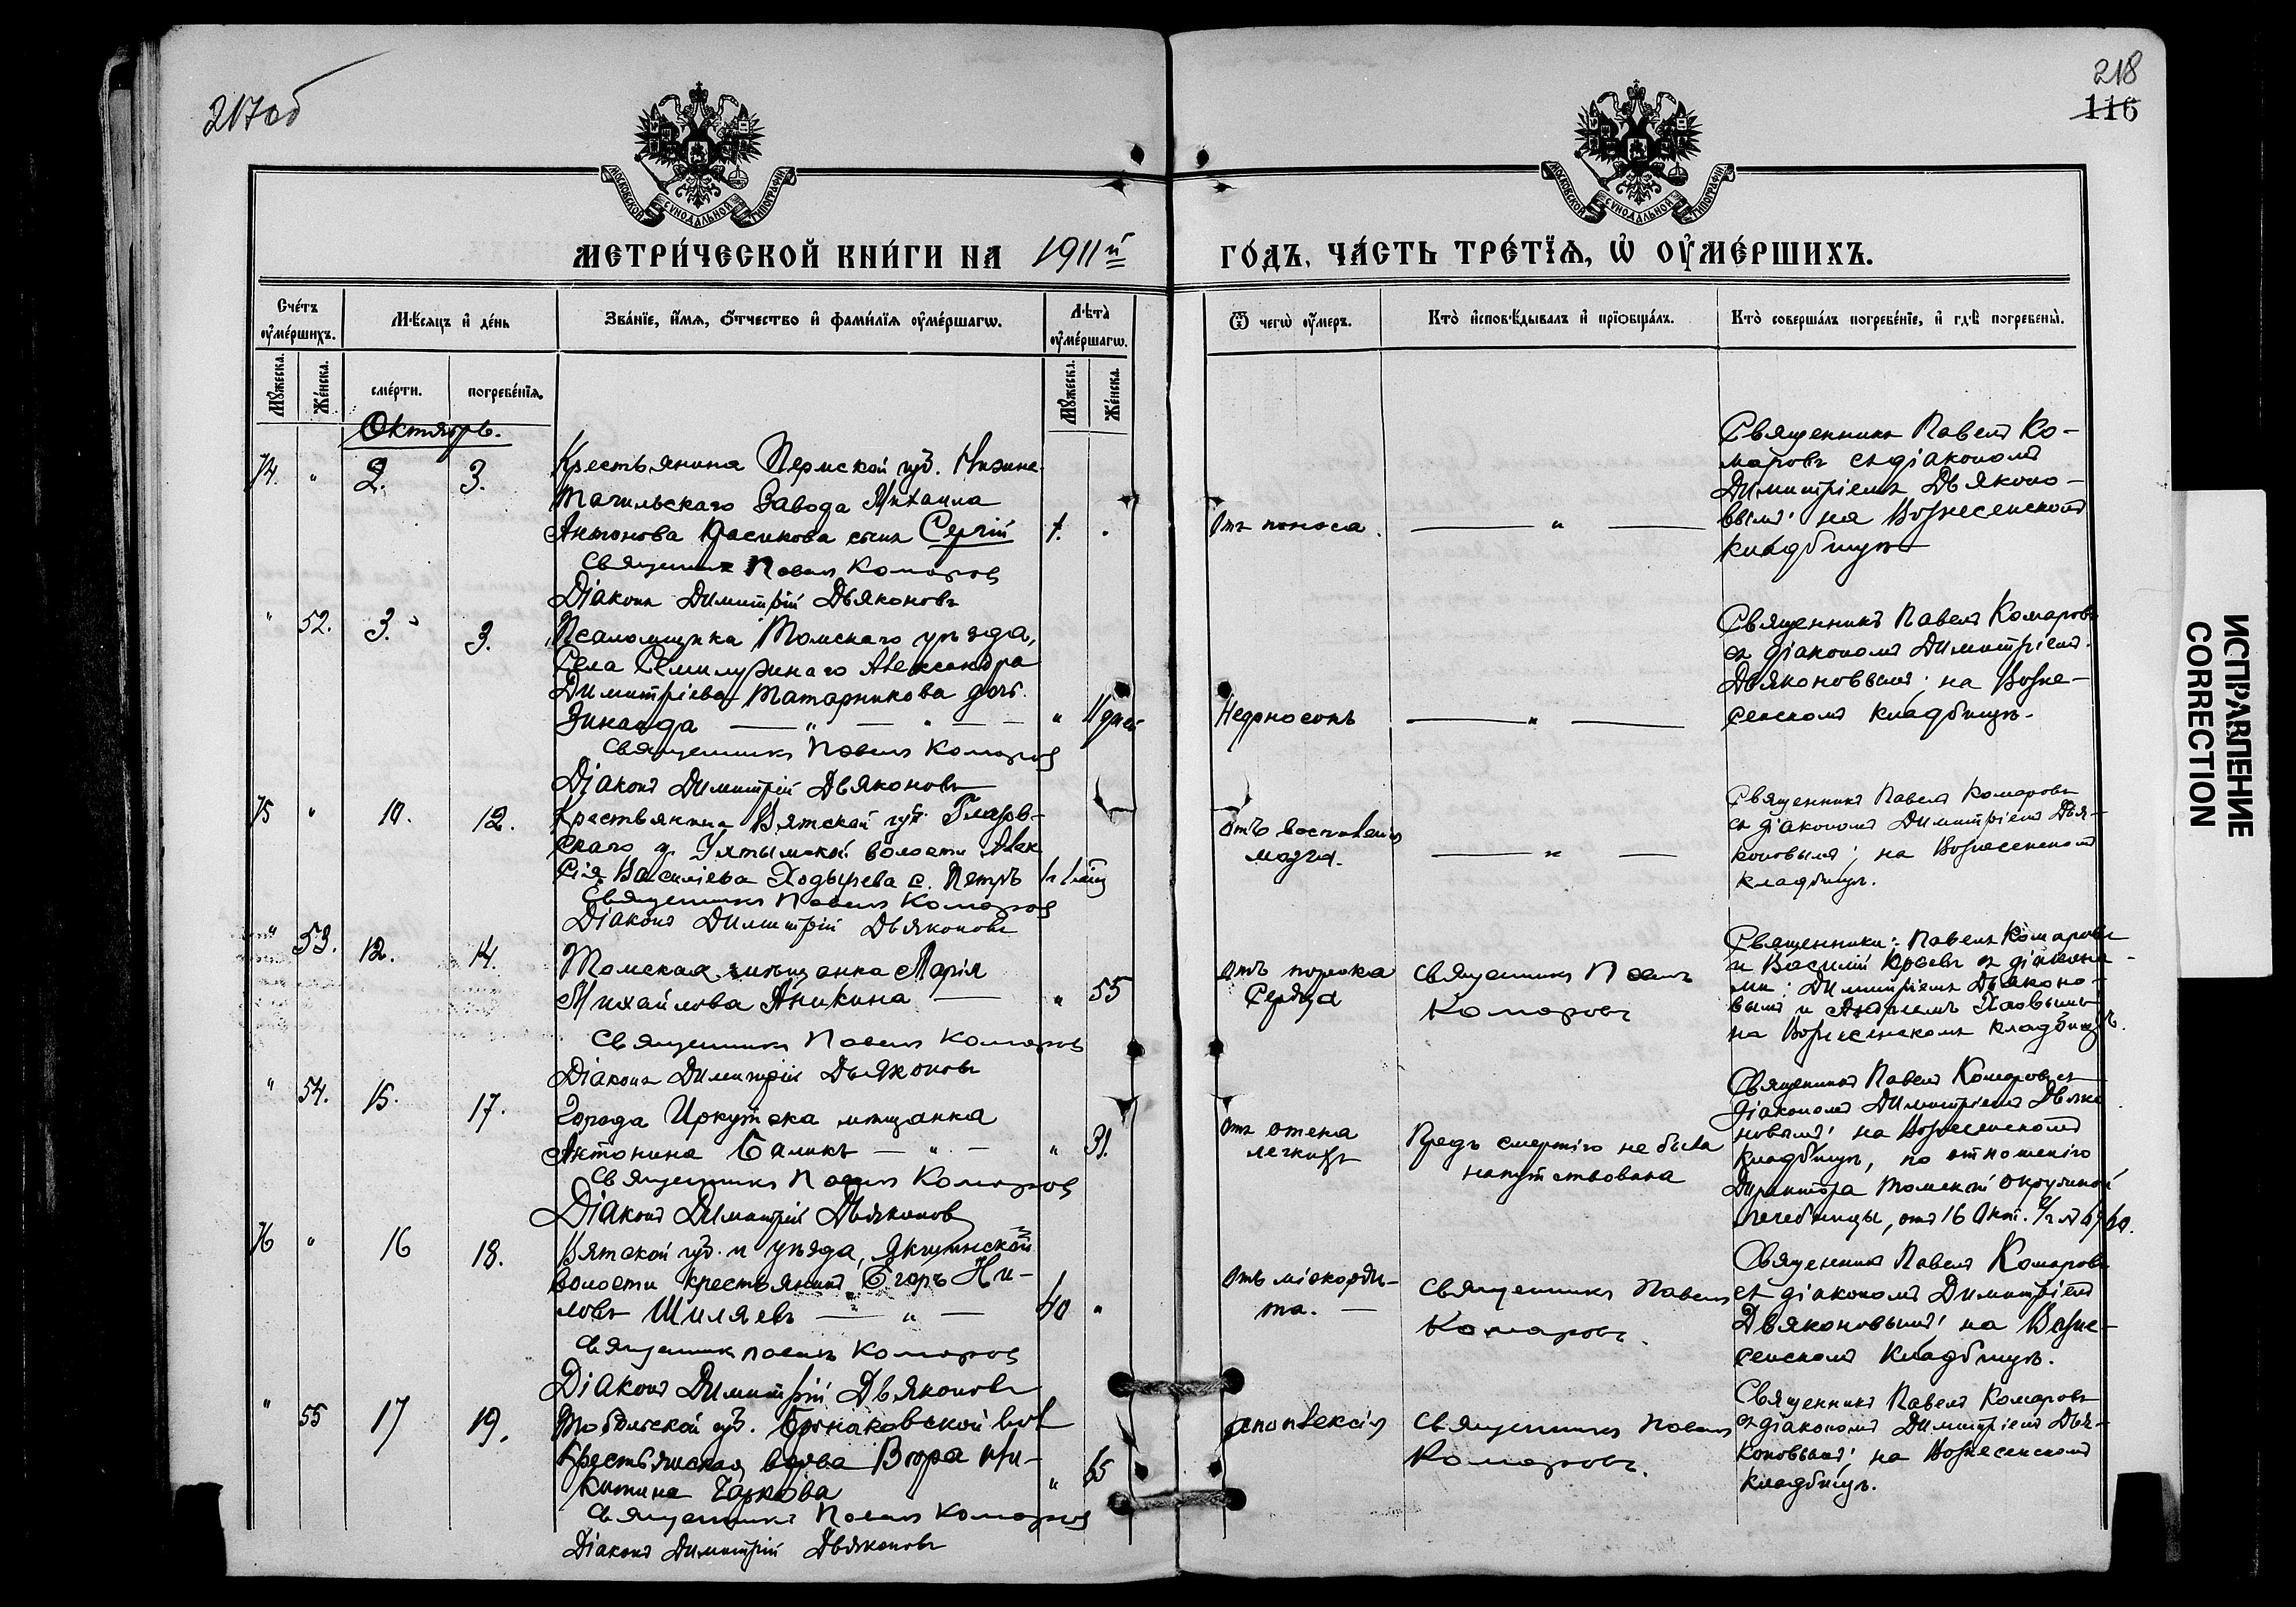 217об
218
116
МОСКОВСКОЙ СѴНОДАЛЬНОЙ ТИПОГРАФІИ
МОСКОВСКОЙ СѴНОДАЛЬНОЙ ТИПОГРАФІИ
МЕТРИ́ЧЕСКОЙ КНИ́ГИ НА 1911й ГО́ДЪ, ЧА́СТЬ ТРЕ́ТЇѦ, Ѡ҆ ОУ҆МЕ́РШИХЪ.
Сче́тъ оу҆ме́ршихъ.
Мѣ́сяцъ и҆ де́нь
Зва́нїе, и҆́мѧ, ѻ҆́тчество и҆ фами́лїѧ оу҆ме́ршагѡ.
Лѣ́та оу҆ме́ршагѡ.
Ѿ чегѡ̀ оу҆́меръ.
Кто̀ и҆сповѣ́дывалъ и҆ прїѻбща́лъ.
Кто̀ соверша́лъ погребе́нїе, и҆ гдѣ̀ погребены̀.
Мꙋ́жеска.
Же́нска.
сме́рти.
погребе́нїѧ.
Мꙋ́жеска.
Же́нска.
Октябрь.
74. " 2. 3.
Крестьянина Пермской губ. Нижне-
Тагильскаго Завода Михаила
Антонова сынъ Сергій
Священникъ Павелъ Комаровъ
Діаконъ Димитрій Дьяконовъ
Отъ поноса.
Священникъ Павелъ Ко-
маровъ съ діакономъ
Димитріемъ Дьяконо-
вымъ; на Вознесенскомъ
кладбищѣ
" 52. 3. 3.
Псаломщика Томскаго уѣзда,
Села Семилужнаго Александра
Димитріева Татарникова дочь
Зинаида " 11 дней
Священникъ Павелъ Комаровъ
Діаконъ Димитрій Дьяконовъ
Недоносокъ
Священникъ Павелъ Комаровъ
съ діакономъ Димитріемъ
Дьяконовымъ; на Возне-
сенскомъ кладбищѣ.
75 " 10. 12.
Крестьянина Вятской губ. Глазов-
скаго у. волости Алек
сія Василіева Ходырева с. Петръ
Священникъ Павелъ Комаровъ
Діаконъ Димитрій Дьяконовъ
отъ воспаленія
мозга.
Священникъ Павелъ Комаровъ
съ діакономъ Димитріемъ Дья-
коновымъ; на Вознесенскомъ
кладбищѣ.
" 53. 12. 14.
Томская мѣщанка Марія
Михайлова Аникина " 55
Священникъ Павелъ Комаровъ
Діаконъ Димитрій Дьяконовъ
отъ порока
Сердца
Священникъ Павелъ
Комаровъ
Священники: Павелъ Комаровъ
и Василій съ діакона-
ми: Димитріемъ Дьяконо-
вымъ и
на Вознесенскомъ кладбищѣ.
" 54. 15. 17.
Города Иркутска мѣщанка
Антонина Баликъ " 31.
Священникъ Павелъ Комаровъ
Діаконъ Димитрій Дьяконовъ
Отъ отека
легкихъ
Предъ смертію не была
напутствована
Священникъ Павелъ Комаровъ съ
діакономъ Димитріемъ Дьяко
новымъ; на Вознесенскомъ
кладбищѣ, по отношенію
Директора Томской окружной
лечебницы, отъ 16 Окт.
76 " 16 18.
Вятской губ. и уѣзда,
волости крестьянинъ Егоръ Ни-
ловъ Шиляевъ 40 "
Священникъ Павелъ Комаровъ
Діаконъ Димитрій Дьяконовъ
Отъ міокарди-
та.
Священникъ Павелъ
Комаровъ.
Священникъ Павелъ Комаровъ
съ діакономъ Димитріемъ
Дьяконовымъ; на Возне-
сенскомъ кладбищѣ.
" 55 17 19.
Тобольской губ. вол
Крестьянская вдова Вѣра Ни-
китина Чаркова " 65
Священникъ Павелъ Комаровъ
Діаконъ Димитрій Дьяконовъ
апоплексія
Священникъ Павелъ
Комаровъ.
Священникъ Павелъ Комаровъ
съ діакономъ Димитріемъ Дья-
коновымъ; на Вознесенскомъ
кладбищѣ.
ИСПРАВЛЕНИЕ
CORRECTION